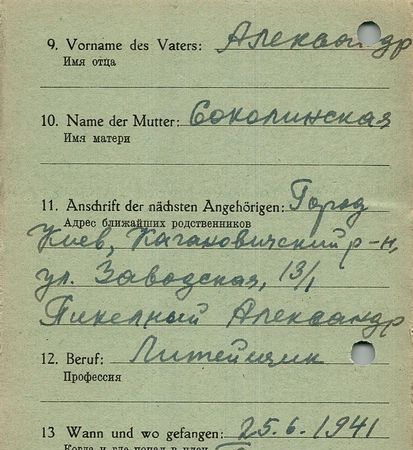 9. Vorname des Vaters: Александр
Имя отца
10. Name der Mutter: Соколинская
Имя матери
11. Anschrift der nächsten Angehörigen: Город
Адрес ближайших родственников
Киев, Кагановический р-н,
ул. Заводская, 13/,
Пикельный Александр
12. Beruf: Литейщик
Профессия
13 Wann und wo gefangen: 25.6.1941
Когда и где попал в плен